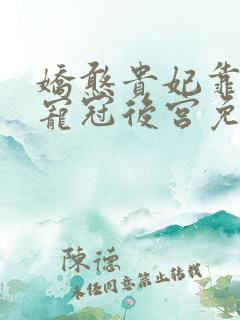 嬌憨貴妃靠
寵冠後宮免
陳德
未經同意禁止轉載